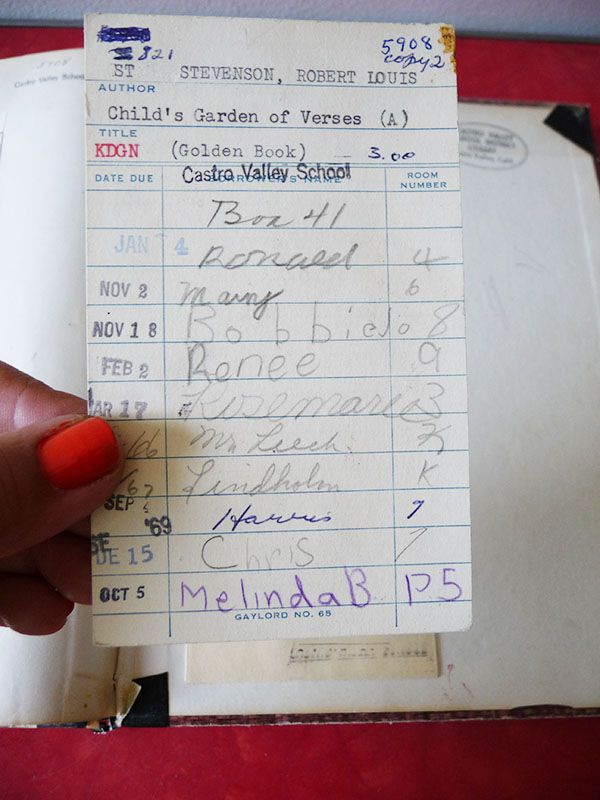 821 5908
copy 2
ST STEVENSON, ROBERT LOUIS
AUTHOR
Child's Garden of Verses (A)
TITLE
KDGN (Golden Book) 3.00
Castro Valley School
DATE DUE BORROWER'S NAME ROOM NUMBER
Box 41
JAN 4 Ronald 4
NOV 2 Mary 6
NOV 18 Bobbie 8
FEB 2 Renee 9
AR 17 Rosemarie 3
/66 Mr Leech K
/67 Lindholm K
SEP Harris 7
'69
DE 15 Chris 7
OCT 5 Melinda B P5
GAYLORD NO. 65
5908
Castro Valley School